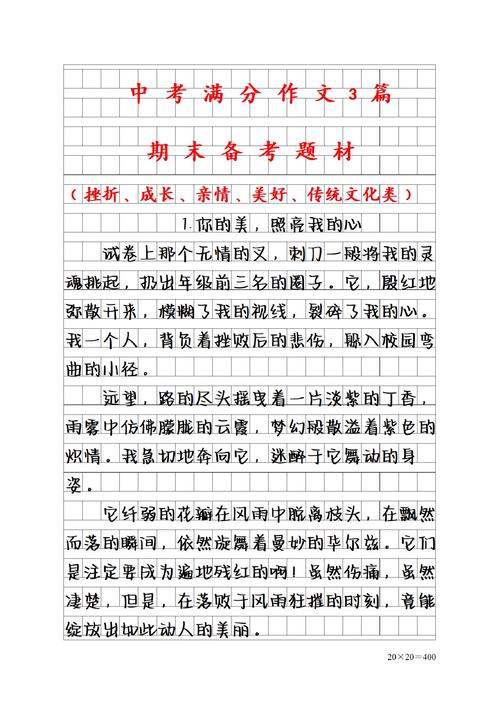 中考满分作文3篇
期末备考题材
(挫折、成长、亲情、美好、传统文化类)
1.你的美，照亮我的心
试卷上那个无情的叉，刺刀一般将我的灵
魂挑起，扔出年级前三名的圈子。它，殷红地
弥散开来，模糊了我的视线，裂碎了我的心。
我一个人，背负着挫败后的悲伤，躲入校园弯
曲的小径。
远望，路的尽头摇曳着一片淡紫的丁香，
雨雾中仿佛朦胧的云霞，梦幻般散溢着紫色的
炽情。我急切地奔向它，迷醉于它舞动的身
姿。
它纤弱的花瓣在风雨中脱离枝头，在飘然
而落的瞬间，依然旋舞着曼妙的华尔兹。它们
是注定要成为遍地残红的啊！虽然伤痛，虽然
凄楚，但是，在落败于风雨狂摧的时刻，竟能
绽放出如此动人的美丽。
20×20=400